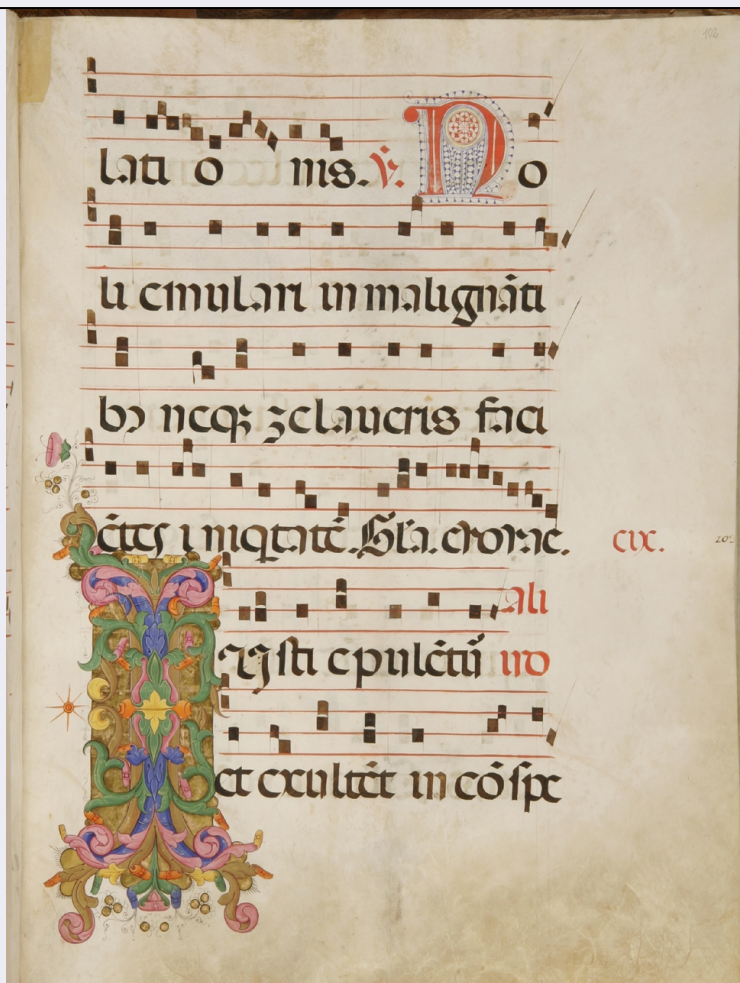 lati o nis. ℣. No
li emulari in malignãti
bꝯ neqꝫ zelaueris faci
ẽtes i niqtatẽ. Gľa. euouae. cix.
ali
Iusti epulẽtũ uo
et exultẽt in cõspe